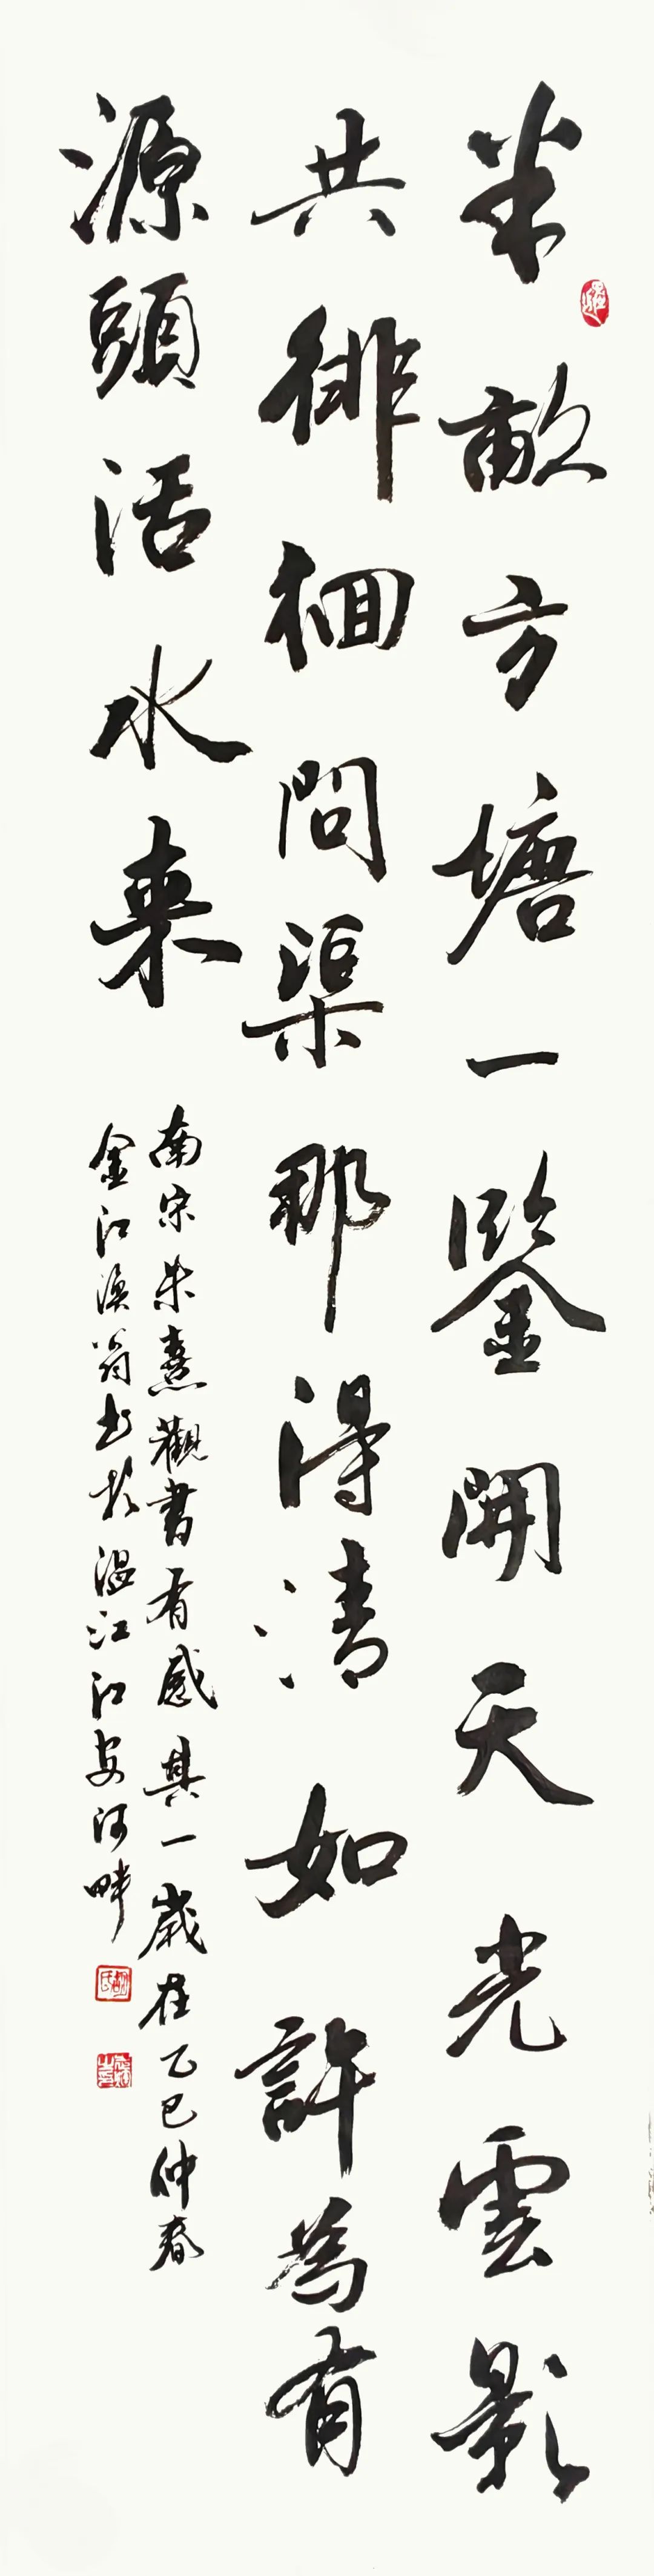 半畝方塘一鑒開天光雲影
共徘徊問渠那得清如許為有
源頭活水来
南宋朱熹觀書有感其一歲在乙巳仲春
金江漁翁书於温江江安河畔